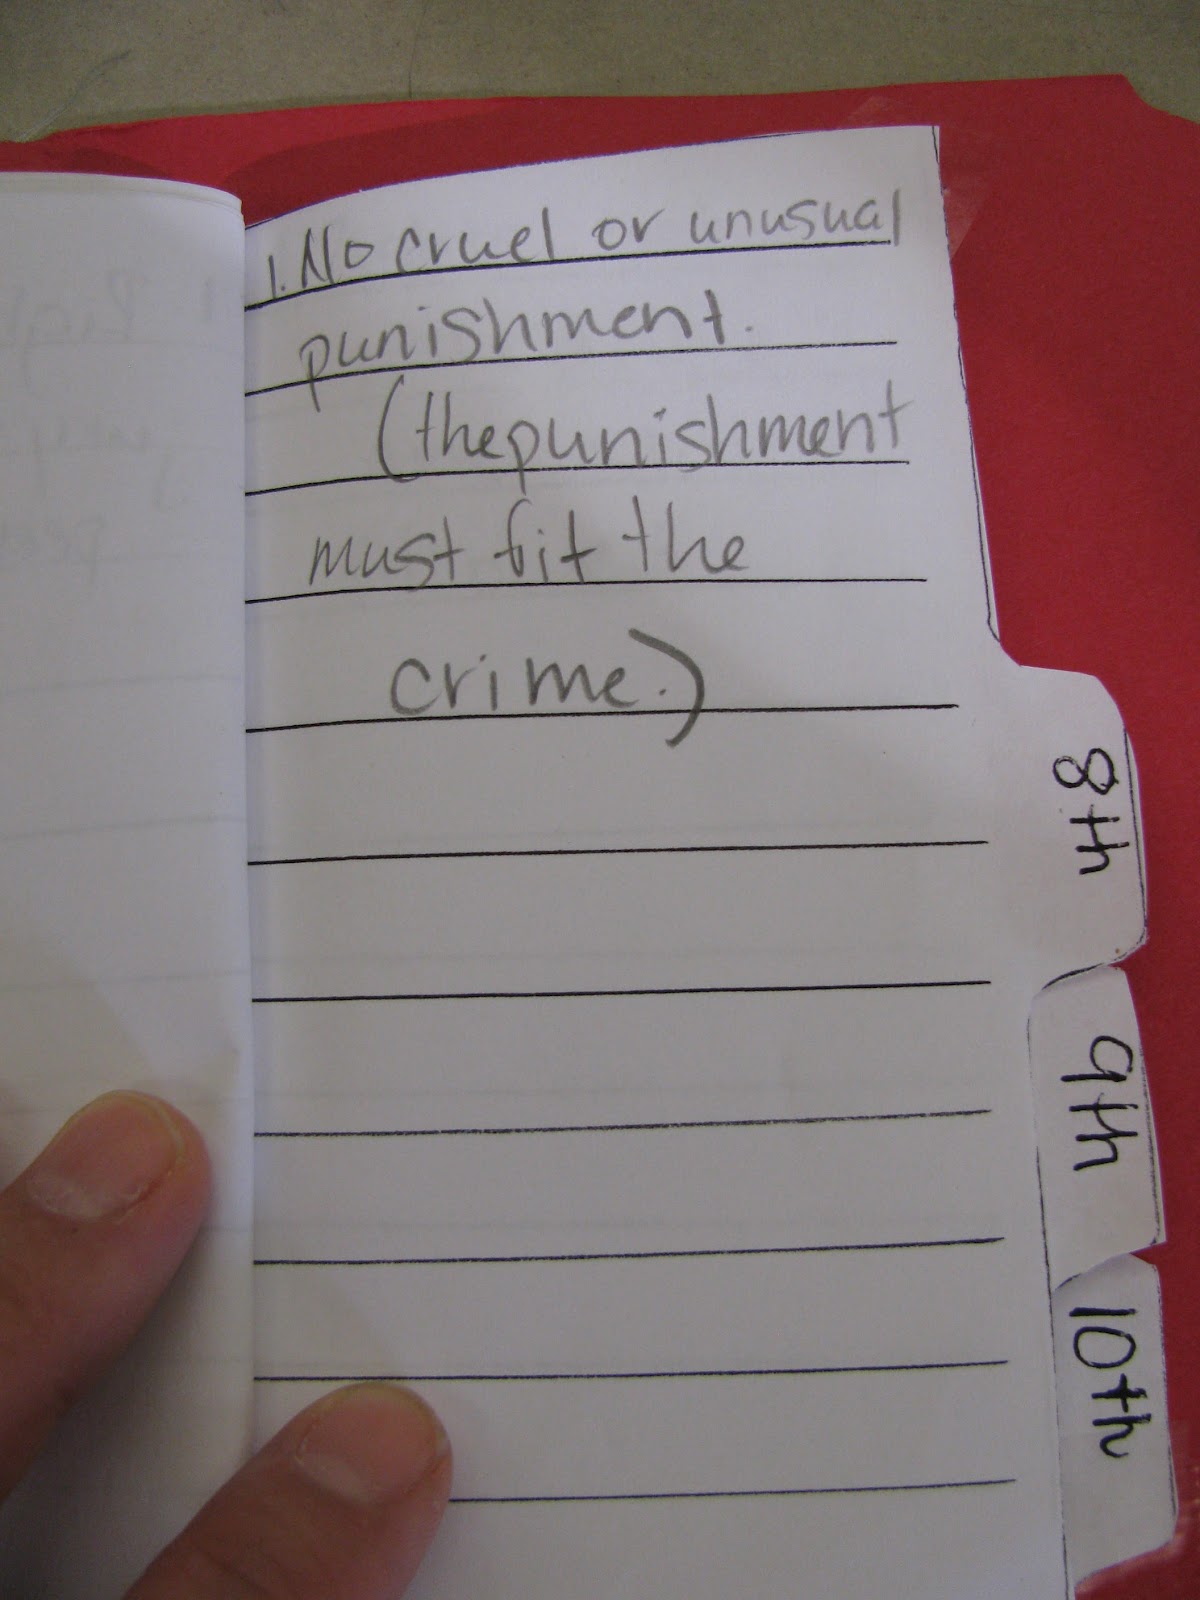 1. No cruel or unusual
punishment.
(the punishment
must fit the
crime.)
8th
9th
10th